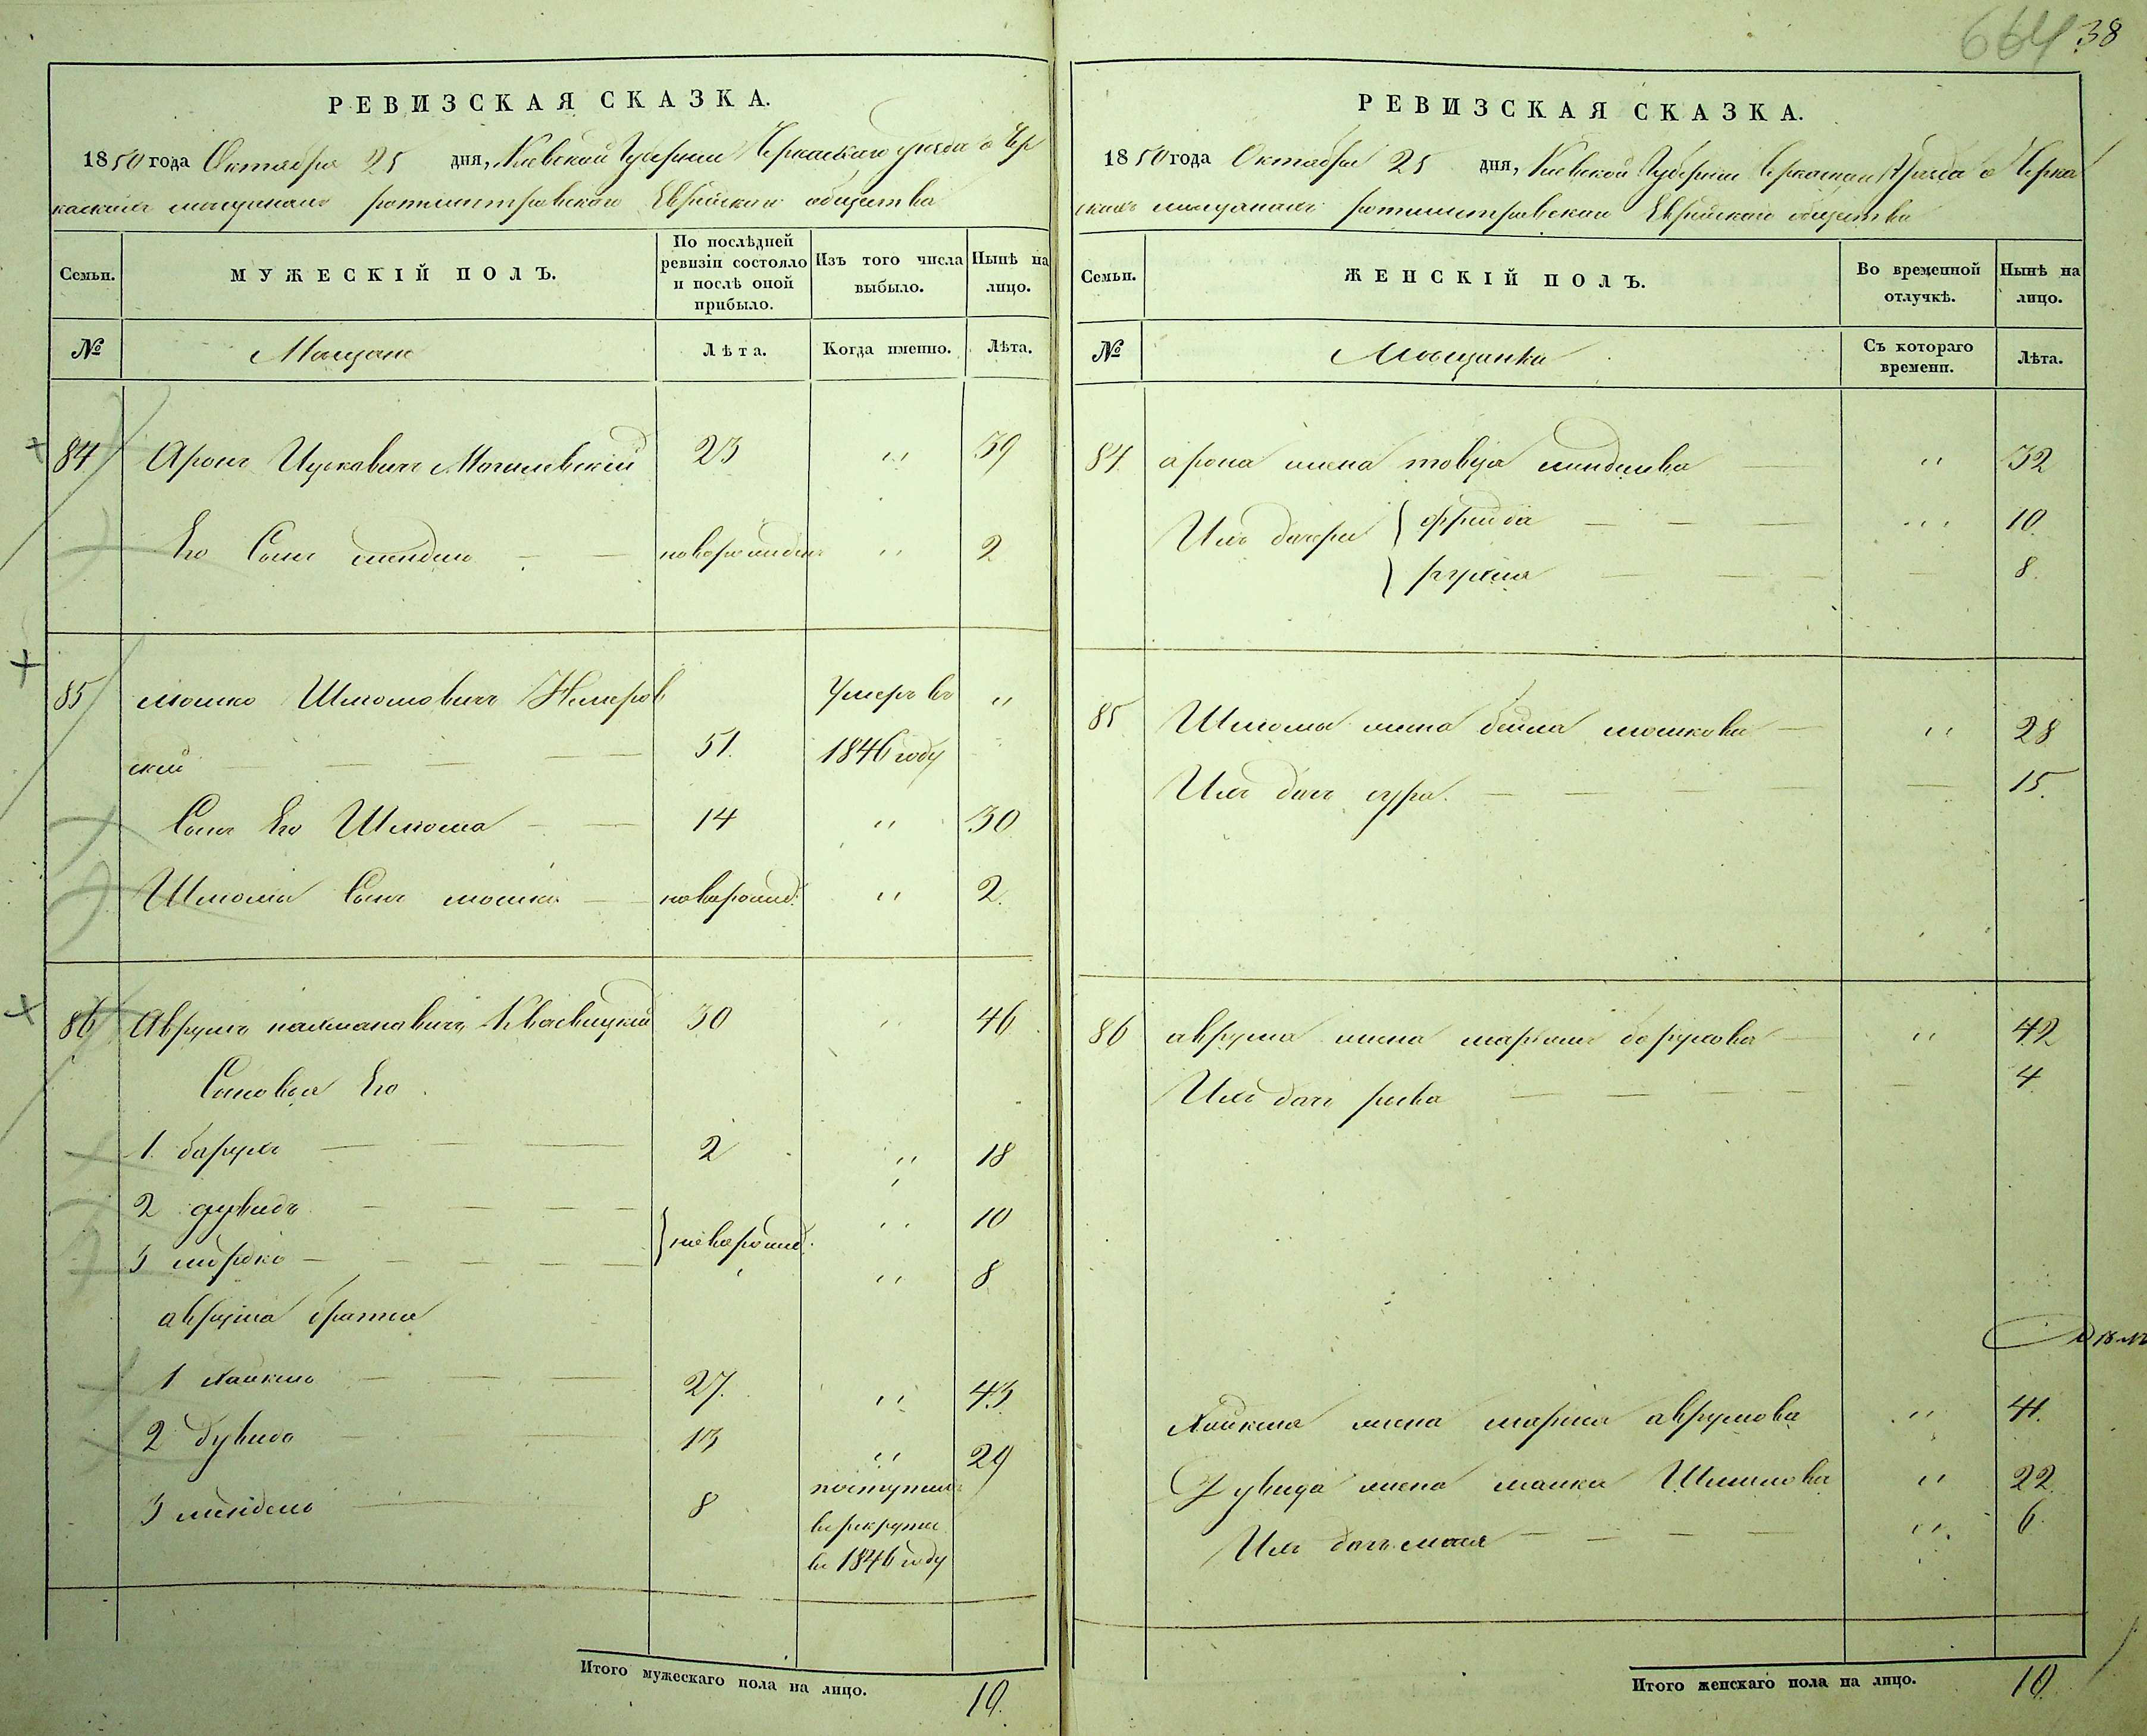 664 38
РЕВИЗСКАЯ СКАЗКА.
1850 года Октября 25 дня, Киевской Губернии Черкаскаго уезда о Чер
каскихъ мещанахъ ротмистровскаго Еврейскаго общества
Семьи.
МУЖЕСКІЙ ПОЛЪ.
По послѣдней ревизіи состояло и послѣ оной прибыло.
Изъ того числа выбыло.
Нынѣ на лицо.
№
Мещане
Лѣта.
Когда именно.
Лѣта.
84 Аронъ Ицковичъ Могилевскій 23 " 39
Его Сынъ мендель новорожденъ " 2
85 мошко Шліомовичъ Немеров Умеръ въ "
скій 51. 1846 году
Сынъ Его Шліома 14 " 30
Шліомы Сынъ мошко новорожд: " 2.
86 Аврумъ нахмановичъ Квасвицкій 30 " 46
Сыновья Его
1. барухъ 2 " 18
2 дувидъ " 10
} новорожд.
3 мордко " 8
аврума братья
1 Хайкель 27. " 43
2 Дувидъ 13 " 29
3 мендель 8 поступилъ
в рекруты
въ 1846 году
Итого мужескаго пола на лицо. 10.
РЕВИЗСКАЯ СКАЗКА.
1850 года Октября 25 дня, Киевской Губернии Черкаскаго Уезда о Черка
скихъ мещанахъ ротмистровскаго Еврейскаго общества
Семьи.
ЖЕНСКІЙ ПОЛЪ.
Во временной отлучкѣ.
Нынѣ на лицо.
№
Мещанки
Съ котораго времени.
Лѣта.
84. арона жена мендлева " 32
Ихъ дочери { фрейда " 10.
рухля 8.
85 Шліомы жена бейла мошкова " 28
Ихъ дочь сура. 15.
86 аврума жена марьямъ борухова " 42
Ихъ дочь рива 4
Хайкеля жена марьям аврумова " 41.
Дувида жена малка Шліомова " 22.
Ихъ дочь " 6.
Итого женскаго пола на лицо. 10.